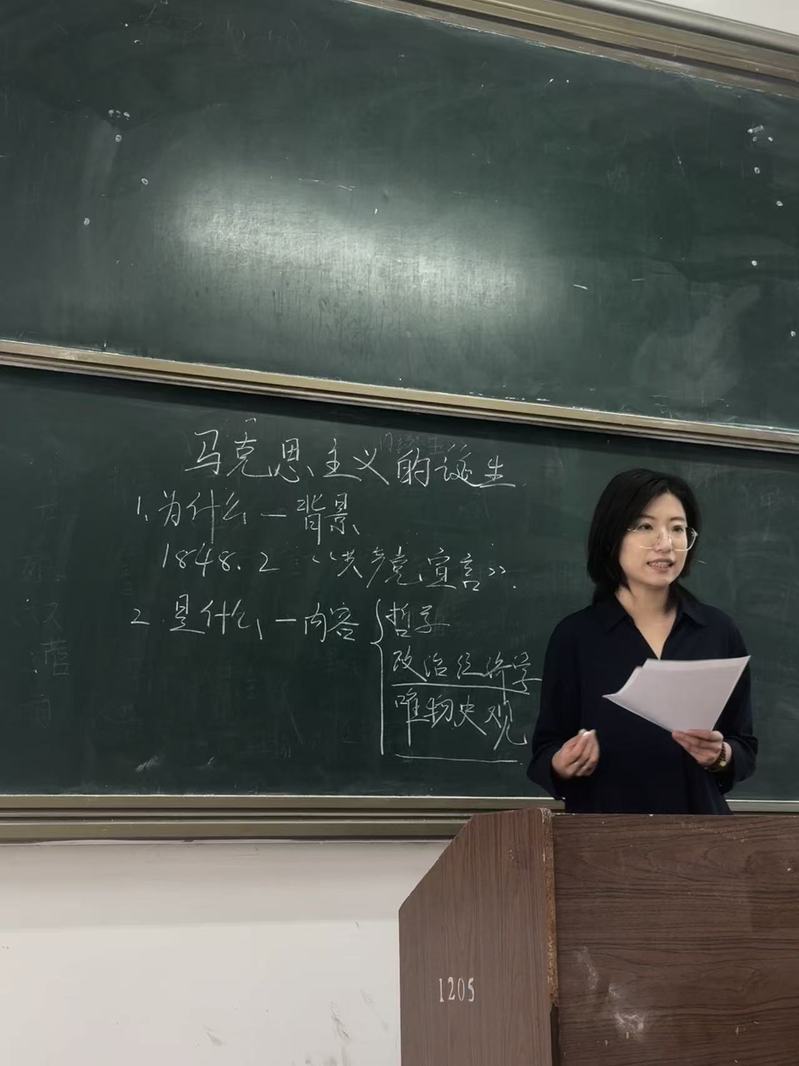 马克思主义的诞生
1、为什么—背景
1848.2 《共产党宣言》.
2 是什么—内容 { 哲学
政治经济学
唯物史观
1205